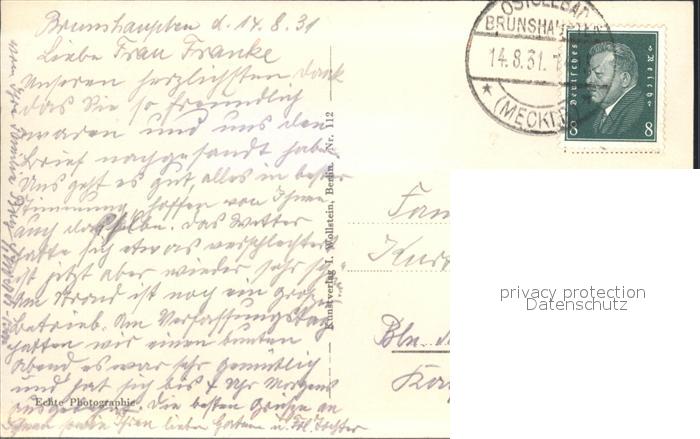 Brunshaupten d. 14.8.31
Liebe Frau Franke
Unseren herzlichsten Dank
das Sie so freundlich
waren und uns den
Brief nachgesandt haben
Uns geht es gut, alles in bester
Stimmung, hoffen von Ihnen
auch dasselbe. Das Wetter
hatte sich etwas verschlechtert
ist jetzt aber wieder sehr schön
Am Strand ist noch ein großer
Betrieb. Am Verfassungstag
hatten wir einen bunten
Abend es war sehr gemütlich
und hat sich bis 4 Uhr Morgens
ausgedehnt. Die besten Grüße an
sowie Ihren lieben Gatten u. Frl. Tochter
Echte Photographie
Kunstverlag I. Wollstein, Berlin. Nr. 112
OSTSEEBAD
BRUNSHAUPTEN
14.8.31.
* (MECKLB
Deutsches Reich
8 8
Fam
Kurt
Bln.
privacy protection
Datenschutz